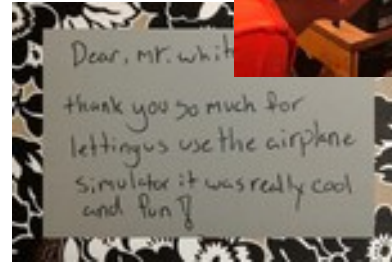 Dear, mr. whit
thank you so much for
letting us use the airplane
simulator it was really cool
and fun!